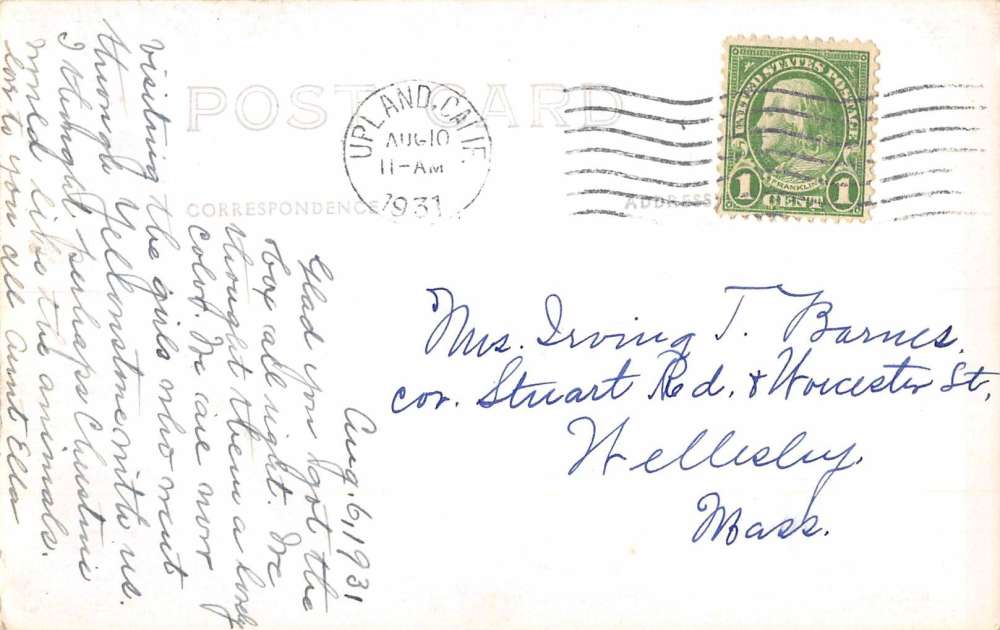 POST CARD
UPLAND, CALIF.
AUG 10
11-AM
1931
UNITED STATES POSTAGE
FRANKLIN
1 CENT 1
CORRESPONDENCE
ADDRESS
Aug. 6, 1931
Glad you got the
box all right. We
thought them a lovely
color. We are now
visiting the girls who went
through Yellowstone with us.
I thought perhaps Christine
would like the animals.
Love to you all Aunt Ella
Mrs. Irving T. Barnes.
cor. Stuart Rd. & Worcester St.
Wellesley.
Mass.